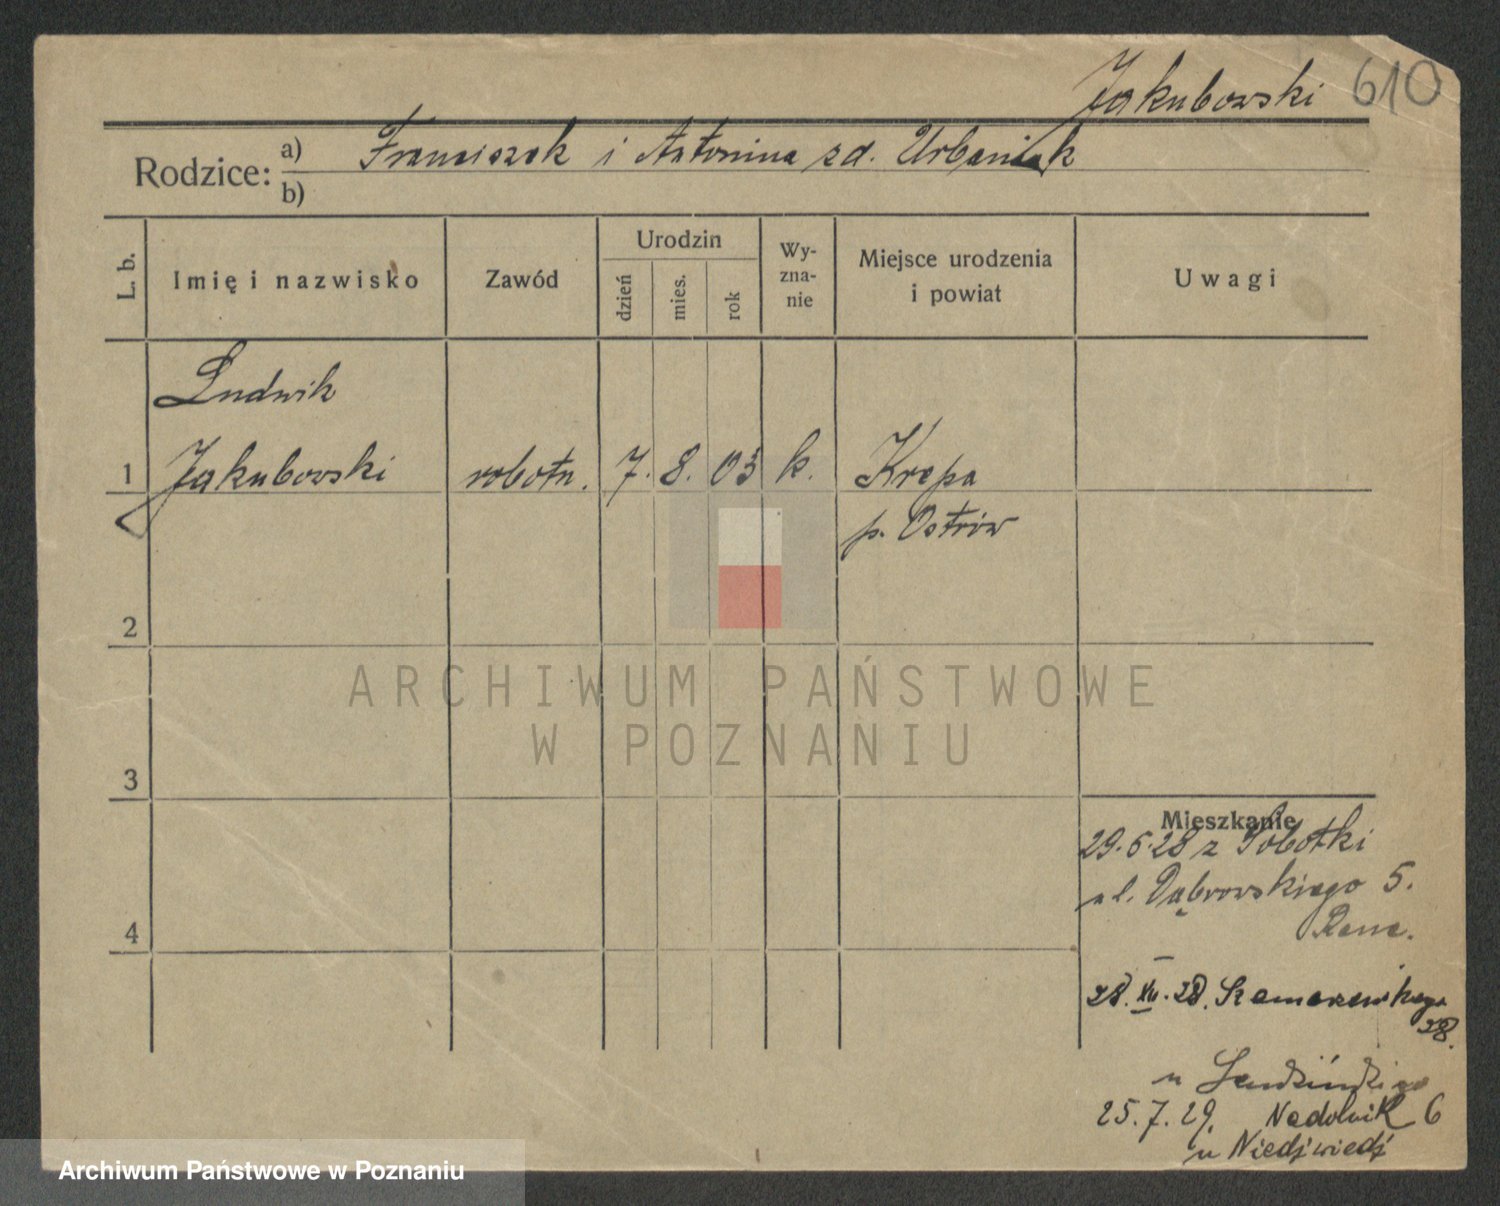 Jakubowski 610
Rodzice: a) Franciszek i Antonina zd. Urbaniak
b)
L. b.
Imię i nazwisko
Zawód
Urodzin
dzień
mies.
rok
Wy-
zna-
nie
Miejsce urodzenia
i powiat
Uwagi
Ludwik
1 Jakubowski robotn. 7. 8. 03 k. Krępa
p. Ostrów
2
ARCHIWUM PAŃSTWOWE
W POZNANIU
3
Mieszkanie
29.6.28 z Sobótki
ul. Dąbrowskiego 5.
4
28. XII. 28.
28.
u
25.7.29. Nadolnik 6
u Niedźwiedź
Archiwum Państwowe w Poznaniu